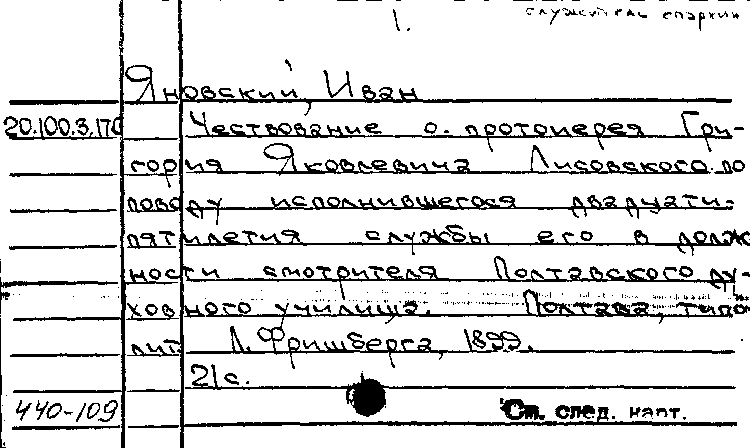 служитель епархии
1.
Яновский, Иван
20.100.3.170 Чествование о. протоиерея Гри-
гория Яковлевича Лисовского по
поводу исполнившегося двадцати-
пятилетия службы его в долж
ности смотрителя Полтавского ду-
ховного училища. Полтава, типо
лит. Л. Фришберга, 1899.
21с.
440-109 См. след. карт.